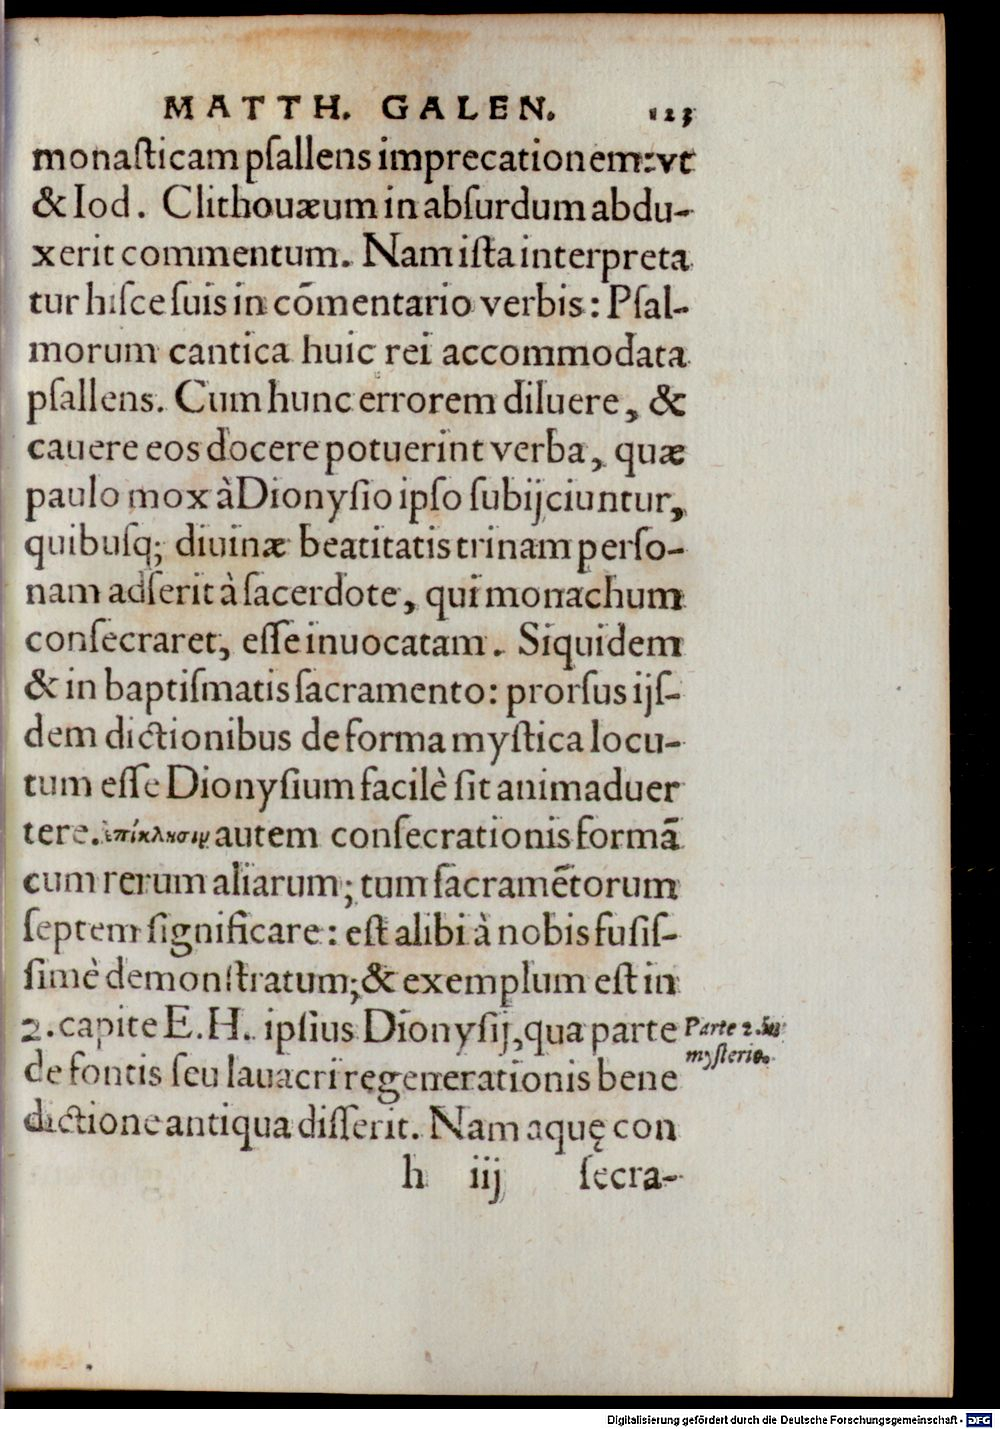 MATTH. GALEN. 123
monaſticam pſallens imprecationem: vt
& Iod. Clithouæum in abſurdum abdu-
xerit commentum. Nam iſta interpreta
tur hiſce ſuis in cōmentario verbis: Pſal-
morum cantica huic rei accommodata
pſallens. Cum hunc errorem diluere, &
cauere eos docere potuerint verba, quæ
paulo mox à Dionyſio ipſo ſubijciuntur,
quibuſq; diuinæ beatitatis trinam perſo-
nam adſerit à ſacerdote, qui monachum
conſecraret, eſſe inuocatam. Siquidem
& in baptiſmatis ſacramento: prorſus ijſ-
dem dictionibus de forma myſtica locu-
tum eſſe Dionyſium facilè ſit animaduer
tere. ἐπίκλησιν autem conſecrationis formā
cum rerum aliarum; tum ſacramētorum
ſeptem ſignificare: eſt alibi à nobis fuſiſ-
ſimè demonſtratum; & exemplum eſt in
2. capite E. H. ipſius Dionyſij, qua parte
Parte 2. ſiu
myſterio.
de fontis ſeu lauacri regenerationis bene
dictione antiqua diſſerit. Nam aquę con
h iij ſecra-
Digitalisierung gefördert durch die Deutsche Forschungsgemeinschaft - DFG